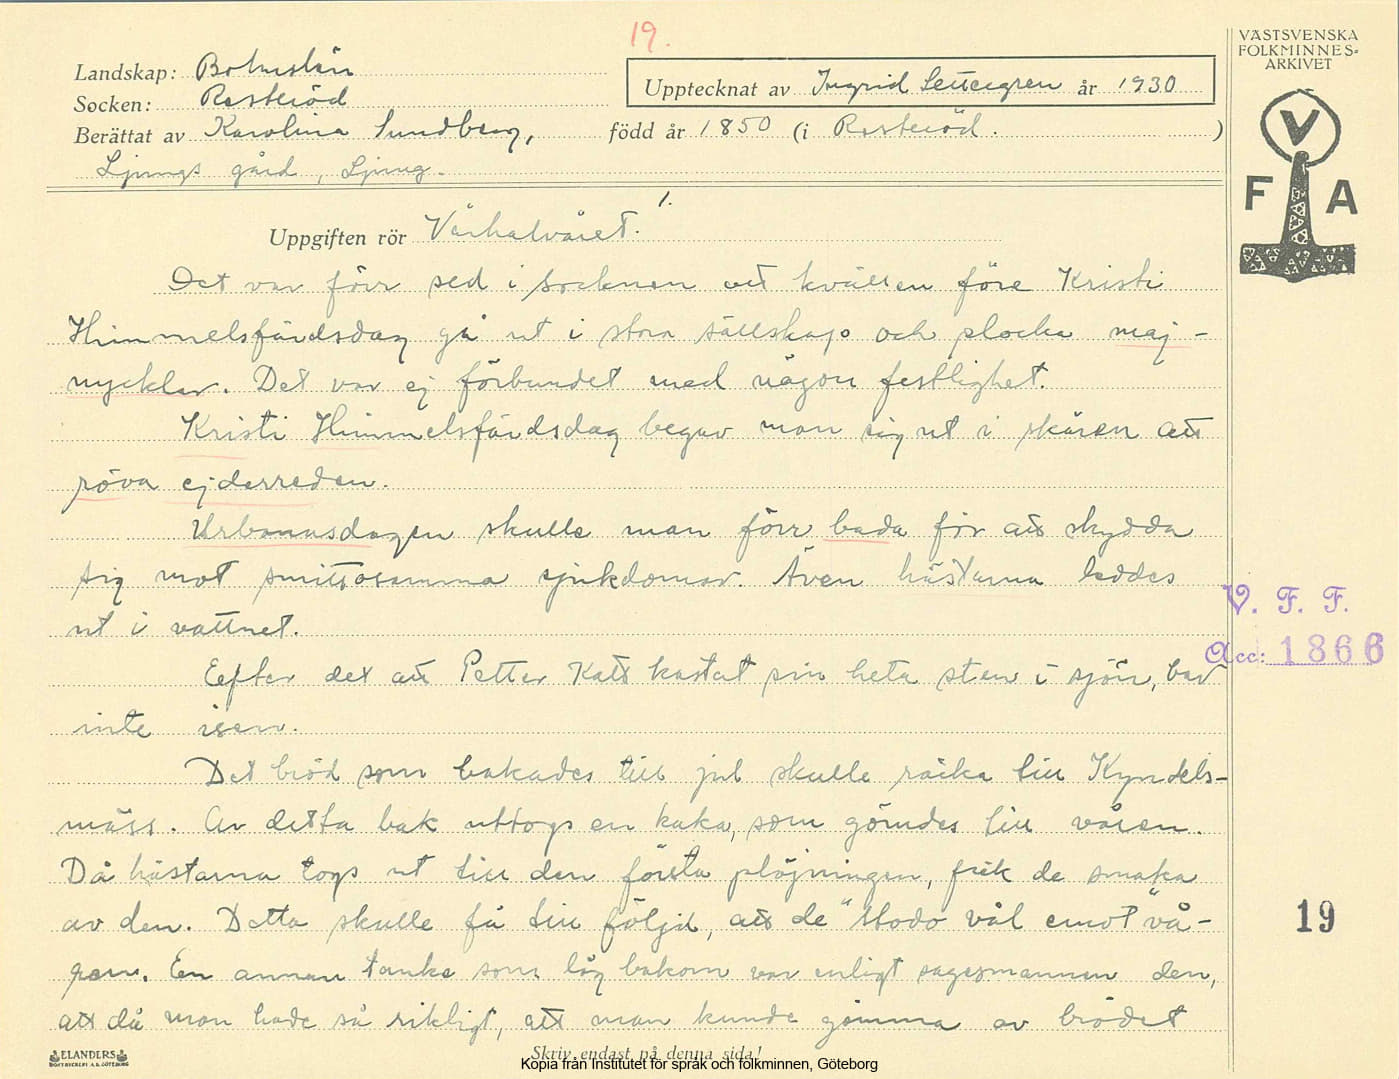 19.
VÄSTSVENSKA
FOLKMINNES-
ARKIVET
Landskap: Bohuslän
Upptecknat av Ingrid år 1930
Socken: Resteröd
Berättat av Karolina Sundberg, född år 1850 (i Resteröd.)
Ljungs gård, Ljung.
V
F A
1.
Uppgiften rör Vårhalvåret.
Det var förr sed i socknen att kvällen före Kristi
Himmelsfärdsdag gå ut i stora sällskap och plocka maj-
nycklar. Det var ej förbundet med någon festlighet.
Kristi Himmelsfärdsdag begav man sig ut i skären att
röva ejderreden.
Urbanusdagen skulle man förr bada för att skydda
sig mot smittosamma sjukdomar. Även hästarna leddes
ut i vattnet.
V. F. F.
Acc: 1866
Efter det att Petter Katt kastat sin heta sten i sjön, bar
inte isen.
Det bröd som bakades till jul skulle räcka till Kyndels-
mäss. Av detta bak uttogs en kaka, som gömdes till våren.
Då hästarna togs ut till den första plöjningen, fick de smaka
av den. Detta skulle få till följd, att de "stodo väl emot" vå-
19
ren. En annan tanke som låg bakom var enligt sagesmannen den,
att då man hade så rikligt, att man kunde gömma av brödet
ELANDERS
BOKTRYCKERI A.B. GÖTEBORG
Skriv endast på denna sida!
Kopia från Institutet för språk och folkminnen, Göteborg